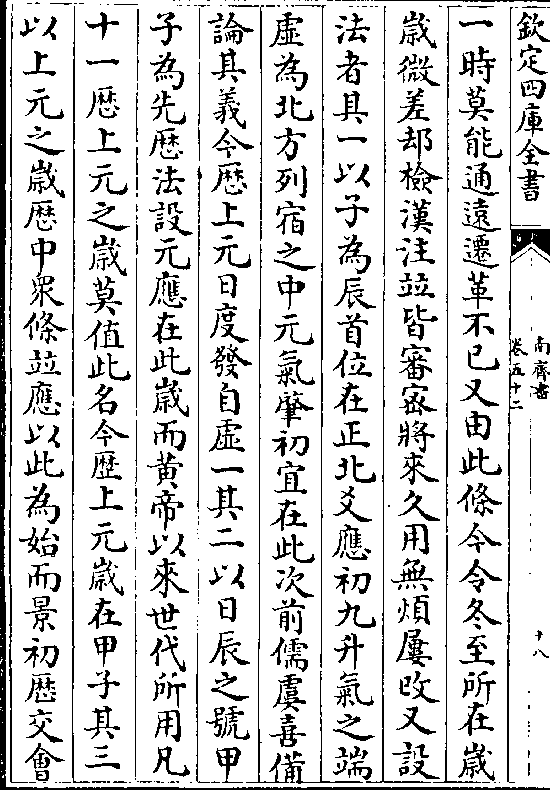 欽定四庫全書
南齊書
卷五十二
十八
一時莫能通遠遷革不已又由此條今令冬至所在歳
歳微差却檢漢注並皆審宻將來久用無煩屢改又設
法者其一以子為辰首位在正北爻應初九升氣之端
虚為北方列宿之中元氣肇初宜在此次前儒虞喜備
論其義今厯上元日度發自虚一其二以日辰之號甲
子為先厯法設元應在此歳而黄帝以來世代所用凡
十一厯上元之歳莫值此名今歴上元歳在甲子其三
以上元之歳厯中衆條並應以此為始而景初厯交會